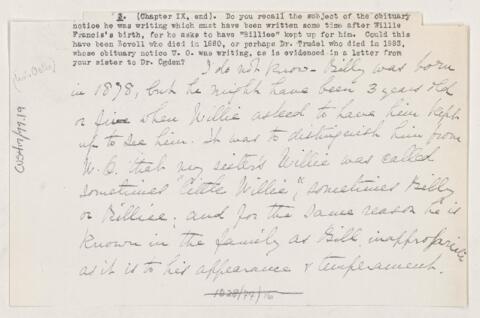 3. (Chapter IX, end). Do you recall the subject of the obituary
notice he was writing which must have been written some time after Willie
Francis's birth, for he asks to have "Billiee" kept up for him. Could this
have been Bovell who died in 1880, or perhaps Dr. Trudel who died in 1882,
whose obituary notice W. O. was writing, as is evidenced in a letter from
your sister to Dr. Ogden?
I do not know – Billy was born
in 1878, but he might have been 3 years old
or five when Willie asked to have him kept
up to see him. It was to distinguish him from
W.O. that my sister's Willie was called
sometimes "little Willie," sometimes Billy
or Billiee; and for the same reason he is
known in the family as Bill, inappropriate
as it is to his appearance & temperament.
CUS417/99.19
1028/77/16